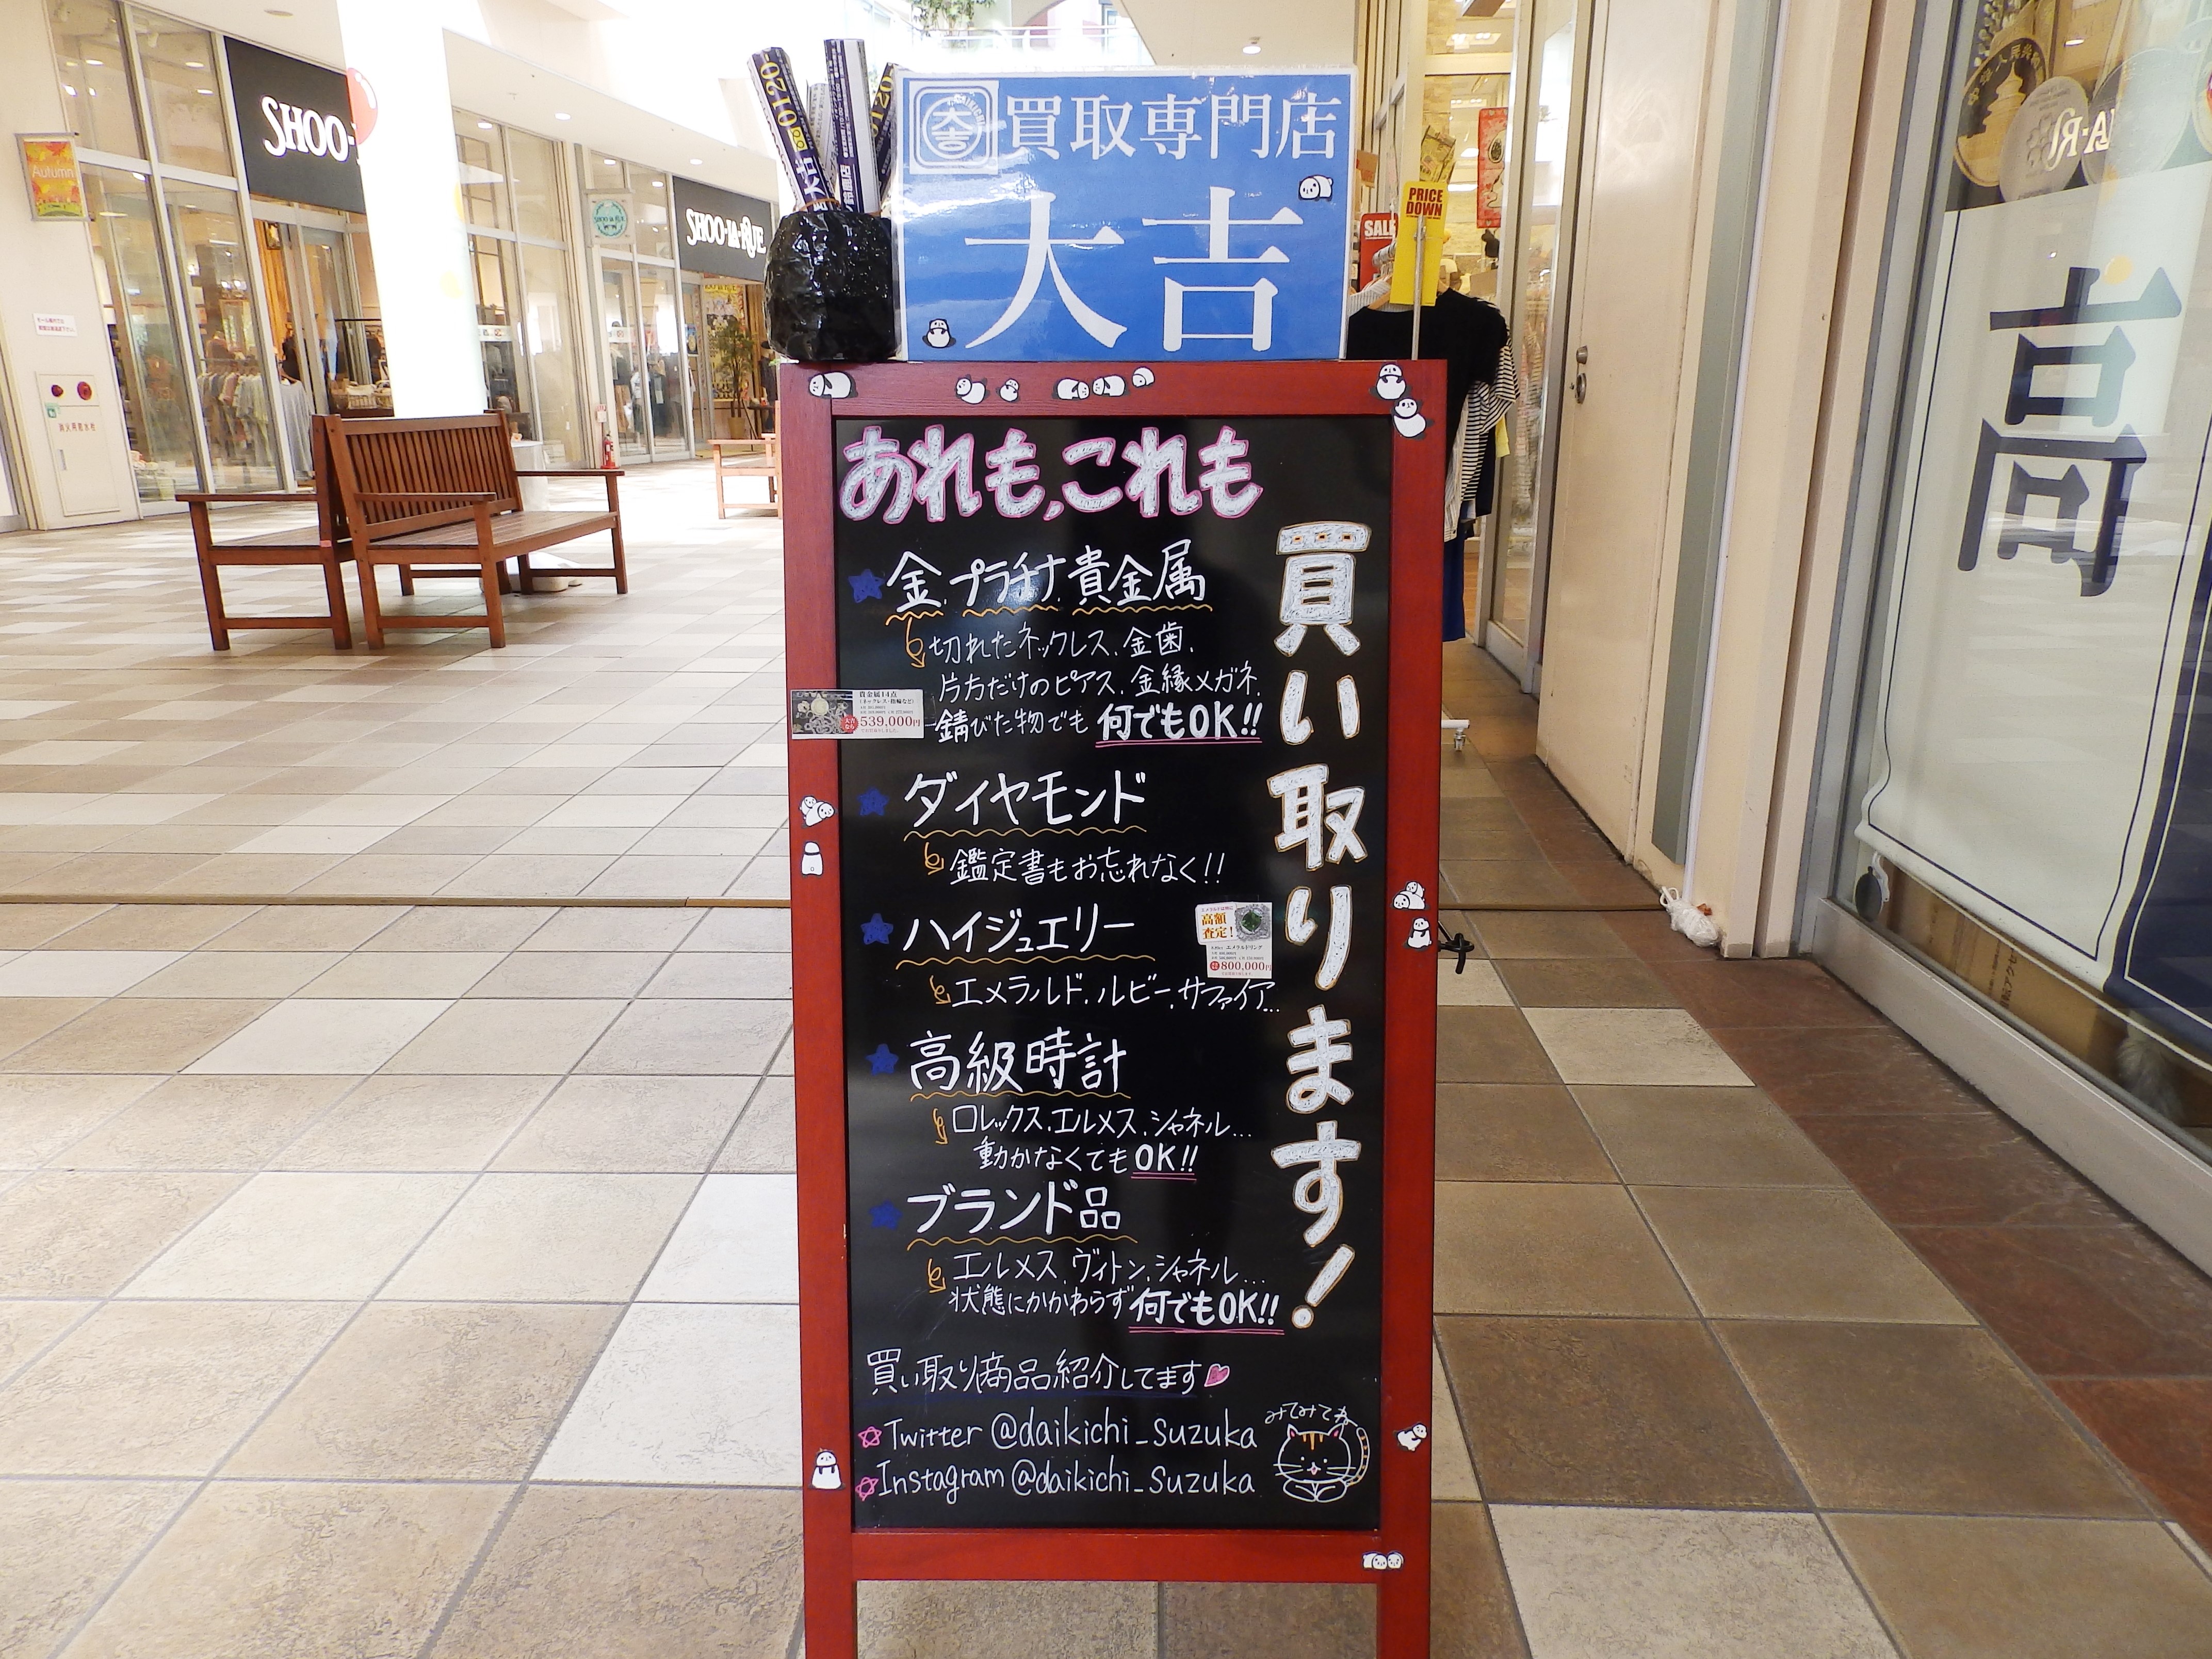 SHOO-
Autumn
SHOO・LA・RUE
0120
大吉
鈴鹿店
DAIKICHI
大吉
買取専門店
大吉
SALE
PRICE
DOWN
あれも,これも
買い取ります!
金.プラチナ.貴金属
切れたネックレス.金歯.
片方だけのピアス.金縁メガネ.
錆びた物でも 何でもOK!!
貴金属14点
(ネックレス・指輪など)
539,000円
ダイヤモンド
鑑定書もお忘れなく!!
ハイジュエリー
高額
査定!
エメラルドリング
800,000円
エメラルド.ルビー.サファイア...
高級時計
ロレックス.エルメス.シャネル...
動かなくてもOK!!
ブランド品
エルメス.ヴィトン.シャネル...
状態にかかわらず何でもOK!!
買い取り商品紹介してます
みてみてね
Twitter @daikichi_suzuka
Instagram @daikichi_suzuka
消火用散水栓